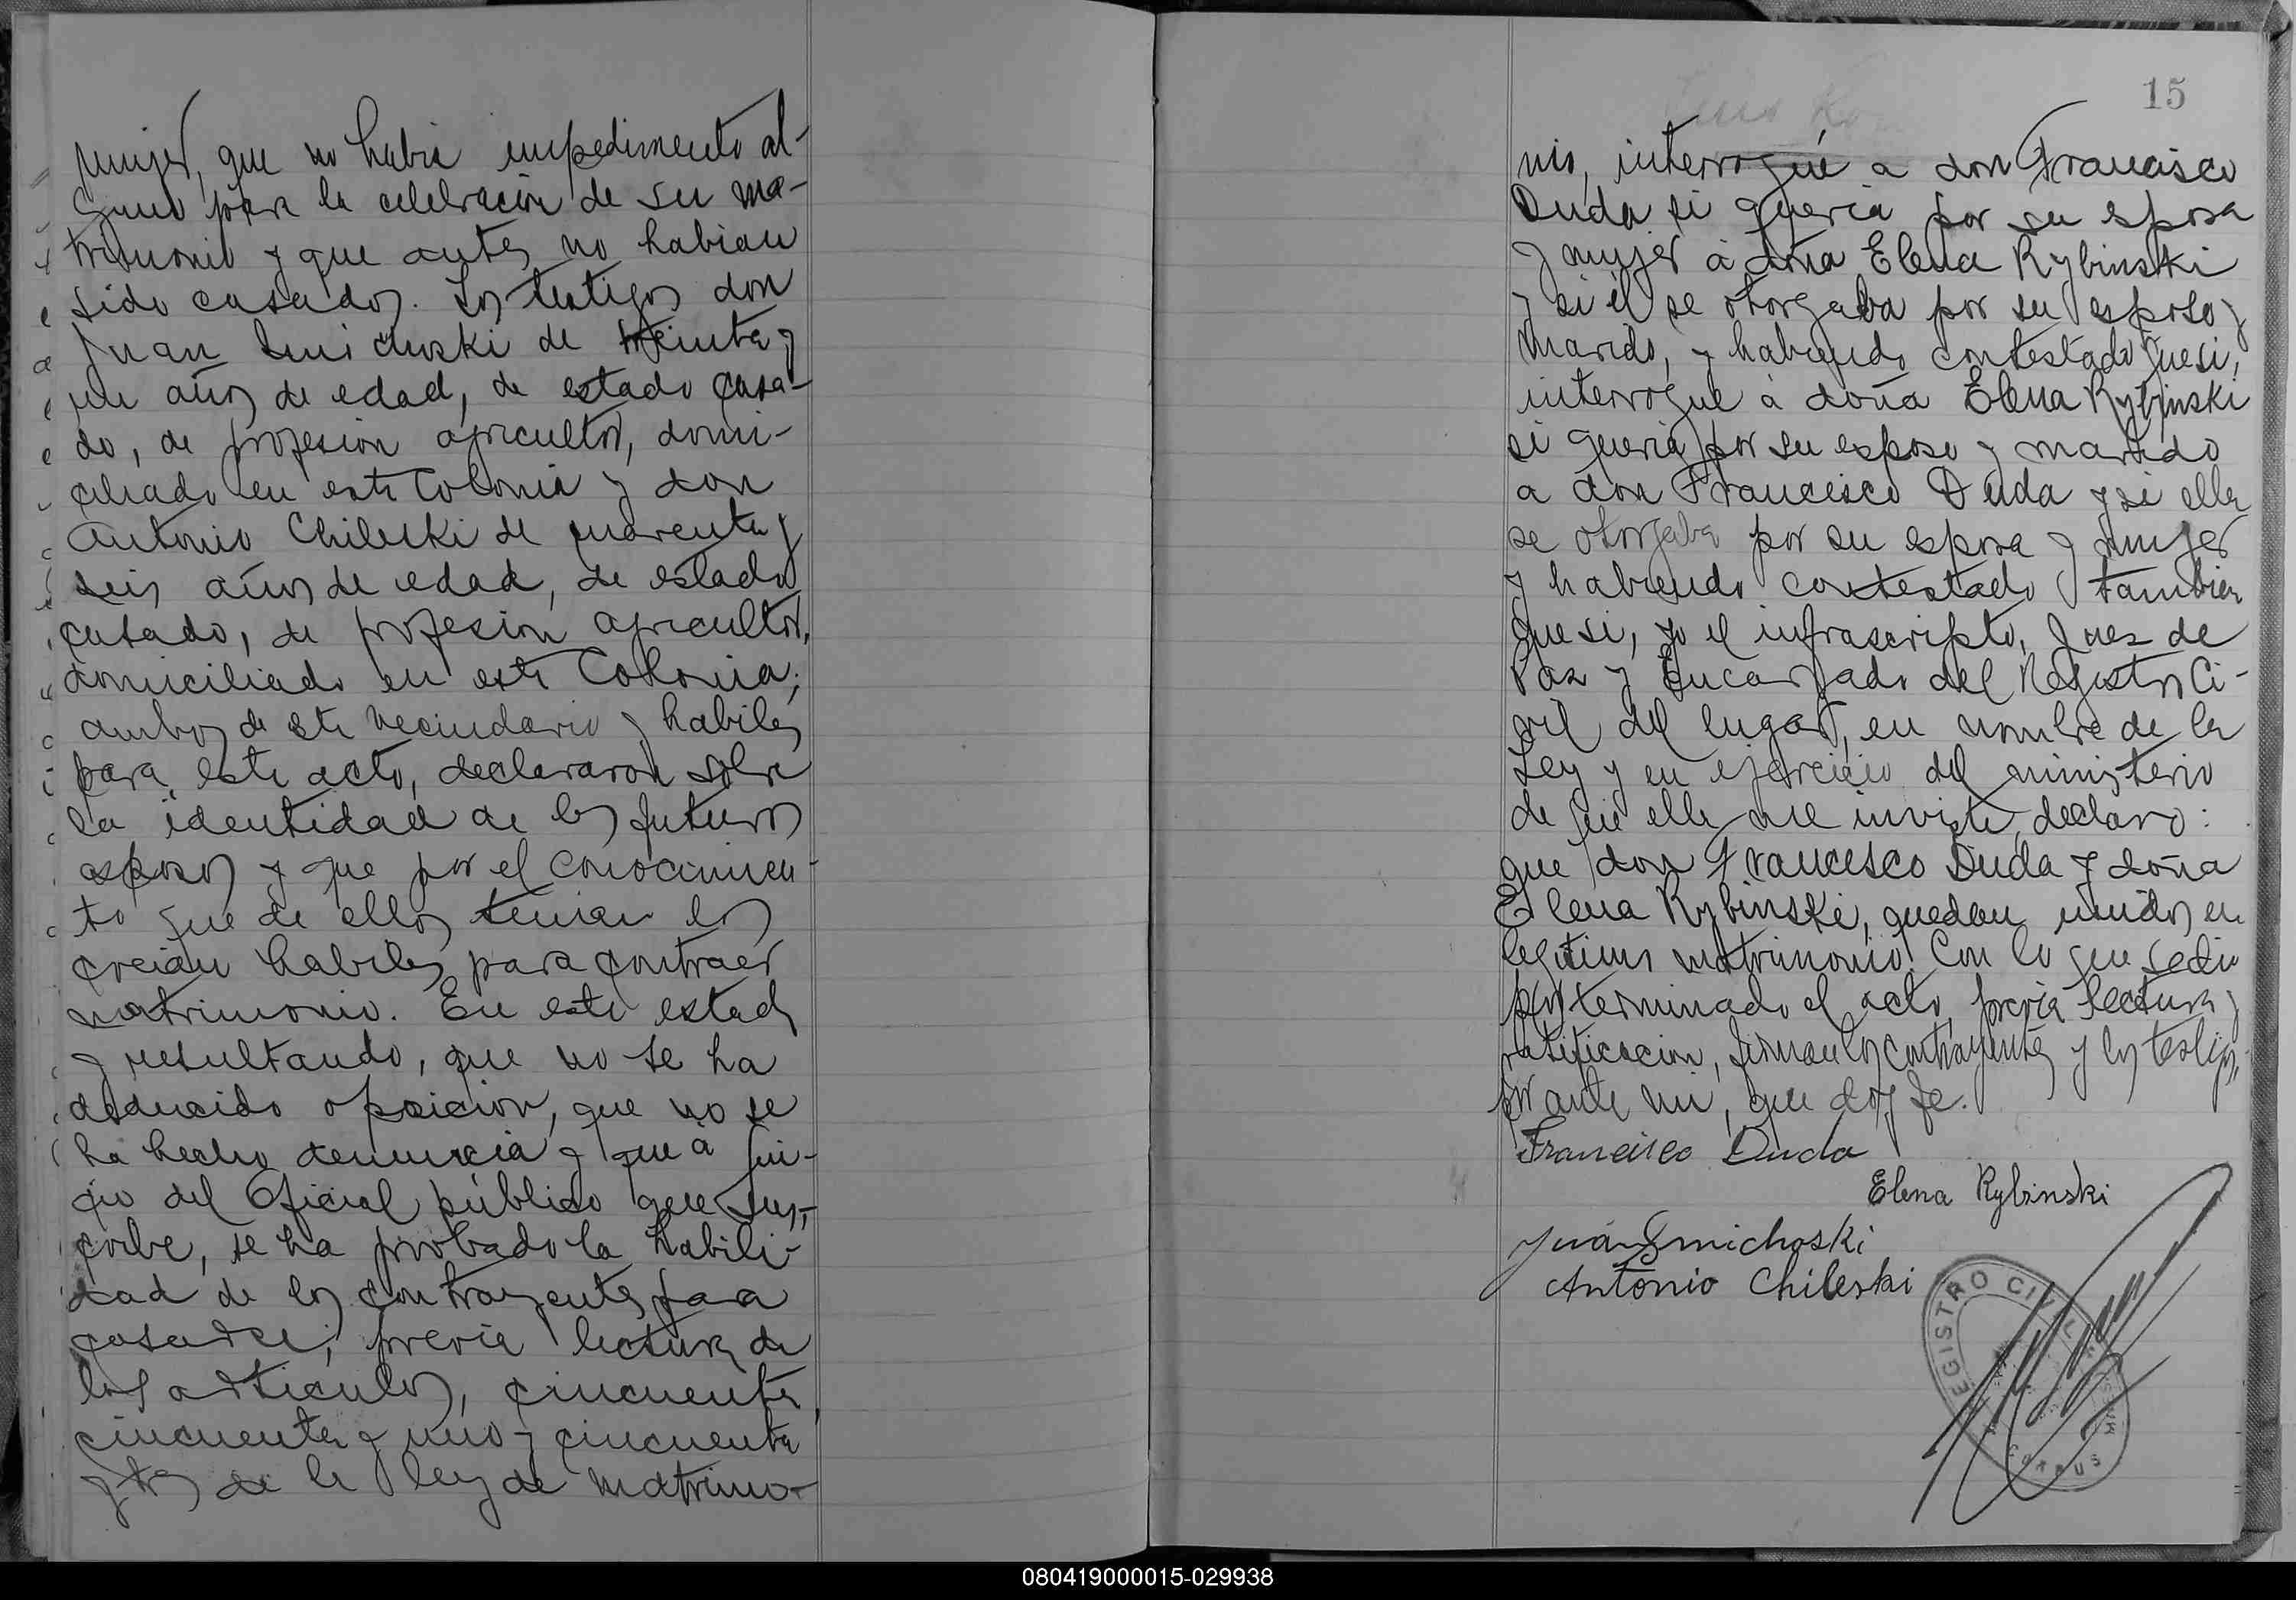 mujer, que no habia impedimento al-
guno para la celebracion de su ma-
trimonio y que antes no habian
sido casados. Los testigos don
Juan Smichoski de treinta y
un años de edad, de estado casa-
do, de profesion agricultor, domi-
ciliado en esta Colonia y don
Antonio Chileski de cuarenta y
seis años de edad, de estado
casado, de profesion agricultor,
domiciliado en esta Colonia;
ambos de este vecindario y habiles
para este acto, declararon sobre
la identidad de los futuros
esposos y que por el conocimien-
to que de ellos tenian los
creian habiles para contraer
matrimonio. En este estado
y resultando, que no se ha
deducido oposicion, que no se
ha hecho denuncia y que á jui-
cio del Oficial público que sus-
cribe, se ha probado la habili-
dad de los contrayentes para
casarse, previa lectura de
los articulos, cincuenta,
cincuenta y uno y cincuenta
y tres de la ley de matrimo-
15
nio, interrogué a don Francisco
Duda si queria por su esposa
y mujer á doña Elena Rybinski
y si él se otorgaba por su esposo y
marido, y habiendo contestado que si,
interrogué á doña Elena Rybinski
si queria por su esposo y marido
a don Francisco Duda y si ella
se otorgaba por su esposa y mujer
y habiendo contestado tambien
que si, yo el infrascripto, Juez de
Paz y Encargado del Registro Ci-
vil del lugar, en nombre de la
Ley y en ejercicio del ministerio
de que ella me inviste, declaro:
que don Francisco Duda y doña
Elena Rybinski, quedan unidos en
legitimo matrimonio. Con lo que se dio
por terminado el acto, previa lectura y
ratificacion, firman los contrayentes y los testigos,
por ante mi, que doy fe.
Francisco Duda
Elena Rybinski
Juan Smichoski
Antonio Chileski
REGISTRO CIVIL
CORPUS
080419000015-029938